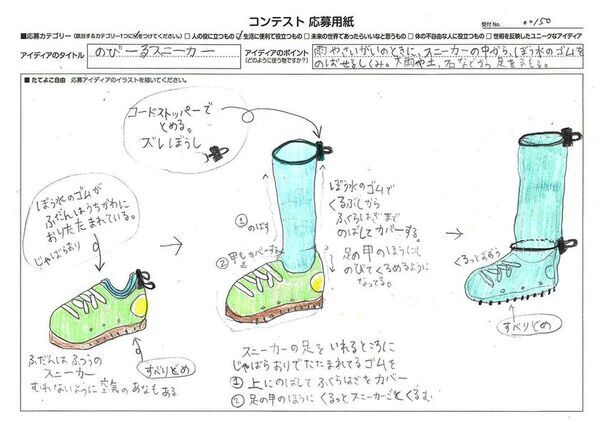 コンテスト 応募用紙
受付No. 00150
■応募カテゴリー(該当するカテゴリー1つに✓をつけてください。) □人の役に立つもの ☑生活に便利で役立つもの □未来の世界であったらいいなと思うもの □体の不自由な人に役立つもの □世相を反映したユニークなアイディア
アイディアのタイトル
のびーるスニーカー
アイディアのポイント
(どのように使う物ですか?)
雨やさいがいのときに、スニーカーの中から、ぼう水のゴムを
のばせるしくみ。大雨や土、石などから足をまもる。
■たてよこ自由 応募アイディアのイラストを描いてください。
コードストッパーで
とめる。
ズレぼうし
ぼう水のゴムが
ふだんはうちがわに
おりたたまれている。
じゃばらおり
ふだんは ふつうの
スニーカー
むれないように 空気のあなもある
すべりどめ
①のばす
②甲もカバーする
ぼう水のゴムで
くるぶしから
ふくらはぎまで
のばしてカバーする。
足の甲のほうにも
のびてくるめるように
なってる。
スニーカーの足をいれるところに
じゃばらおりでたたまれてるゴムを
① 上にのばして ふくらはぎを カバー
② 足の甲のほうに くるっとスニーカーごとくるむ
くるっとおおう
すべりどめ